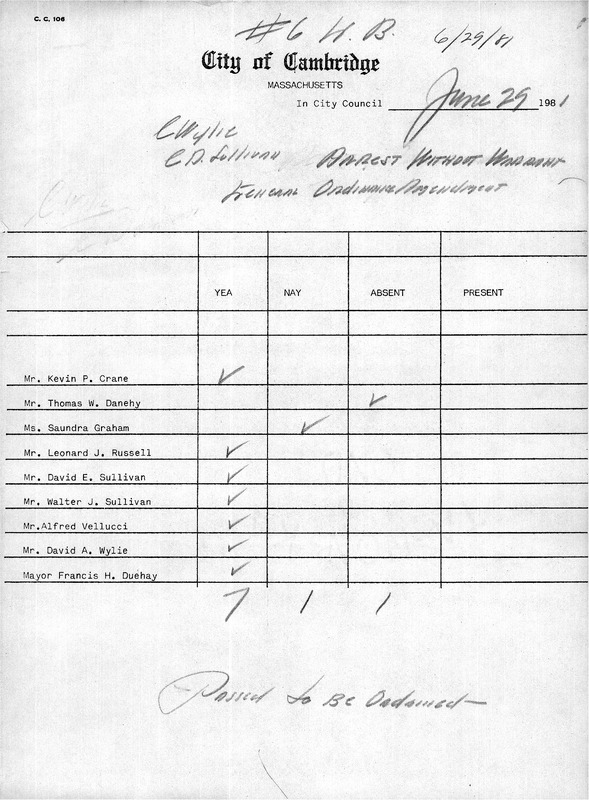 C. C. 106
#6 W. B. 6/29/81
City of Cambridge
MASSACHUSETTS
In City Council June 29 1981
C Wylie
C D. Sullivan Arrest Without Warrant
General Ordinance Amendment
C Wylie
YEA NAY ABSENT PRESENT
Mr. Kevin P. Crane ✓
Mr. Thomas W. Danehy ✓
Ms. Saundra Graham ✓
Mr. Leonard J. Russell ✓
Mr. David E. Sullivan ✓
Mr. Walter J. Sullivan ✓
Mr.Alfred Vellucci ✓
Mr. David A. Wylie ✓
Mayor Francis H. Duehay ✓
7 1 1
Passed to Be Ordained